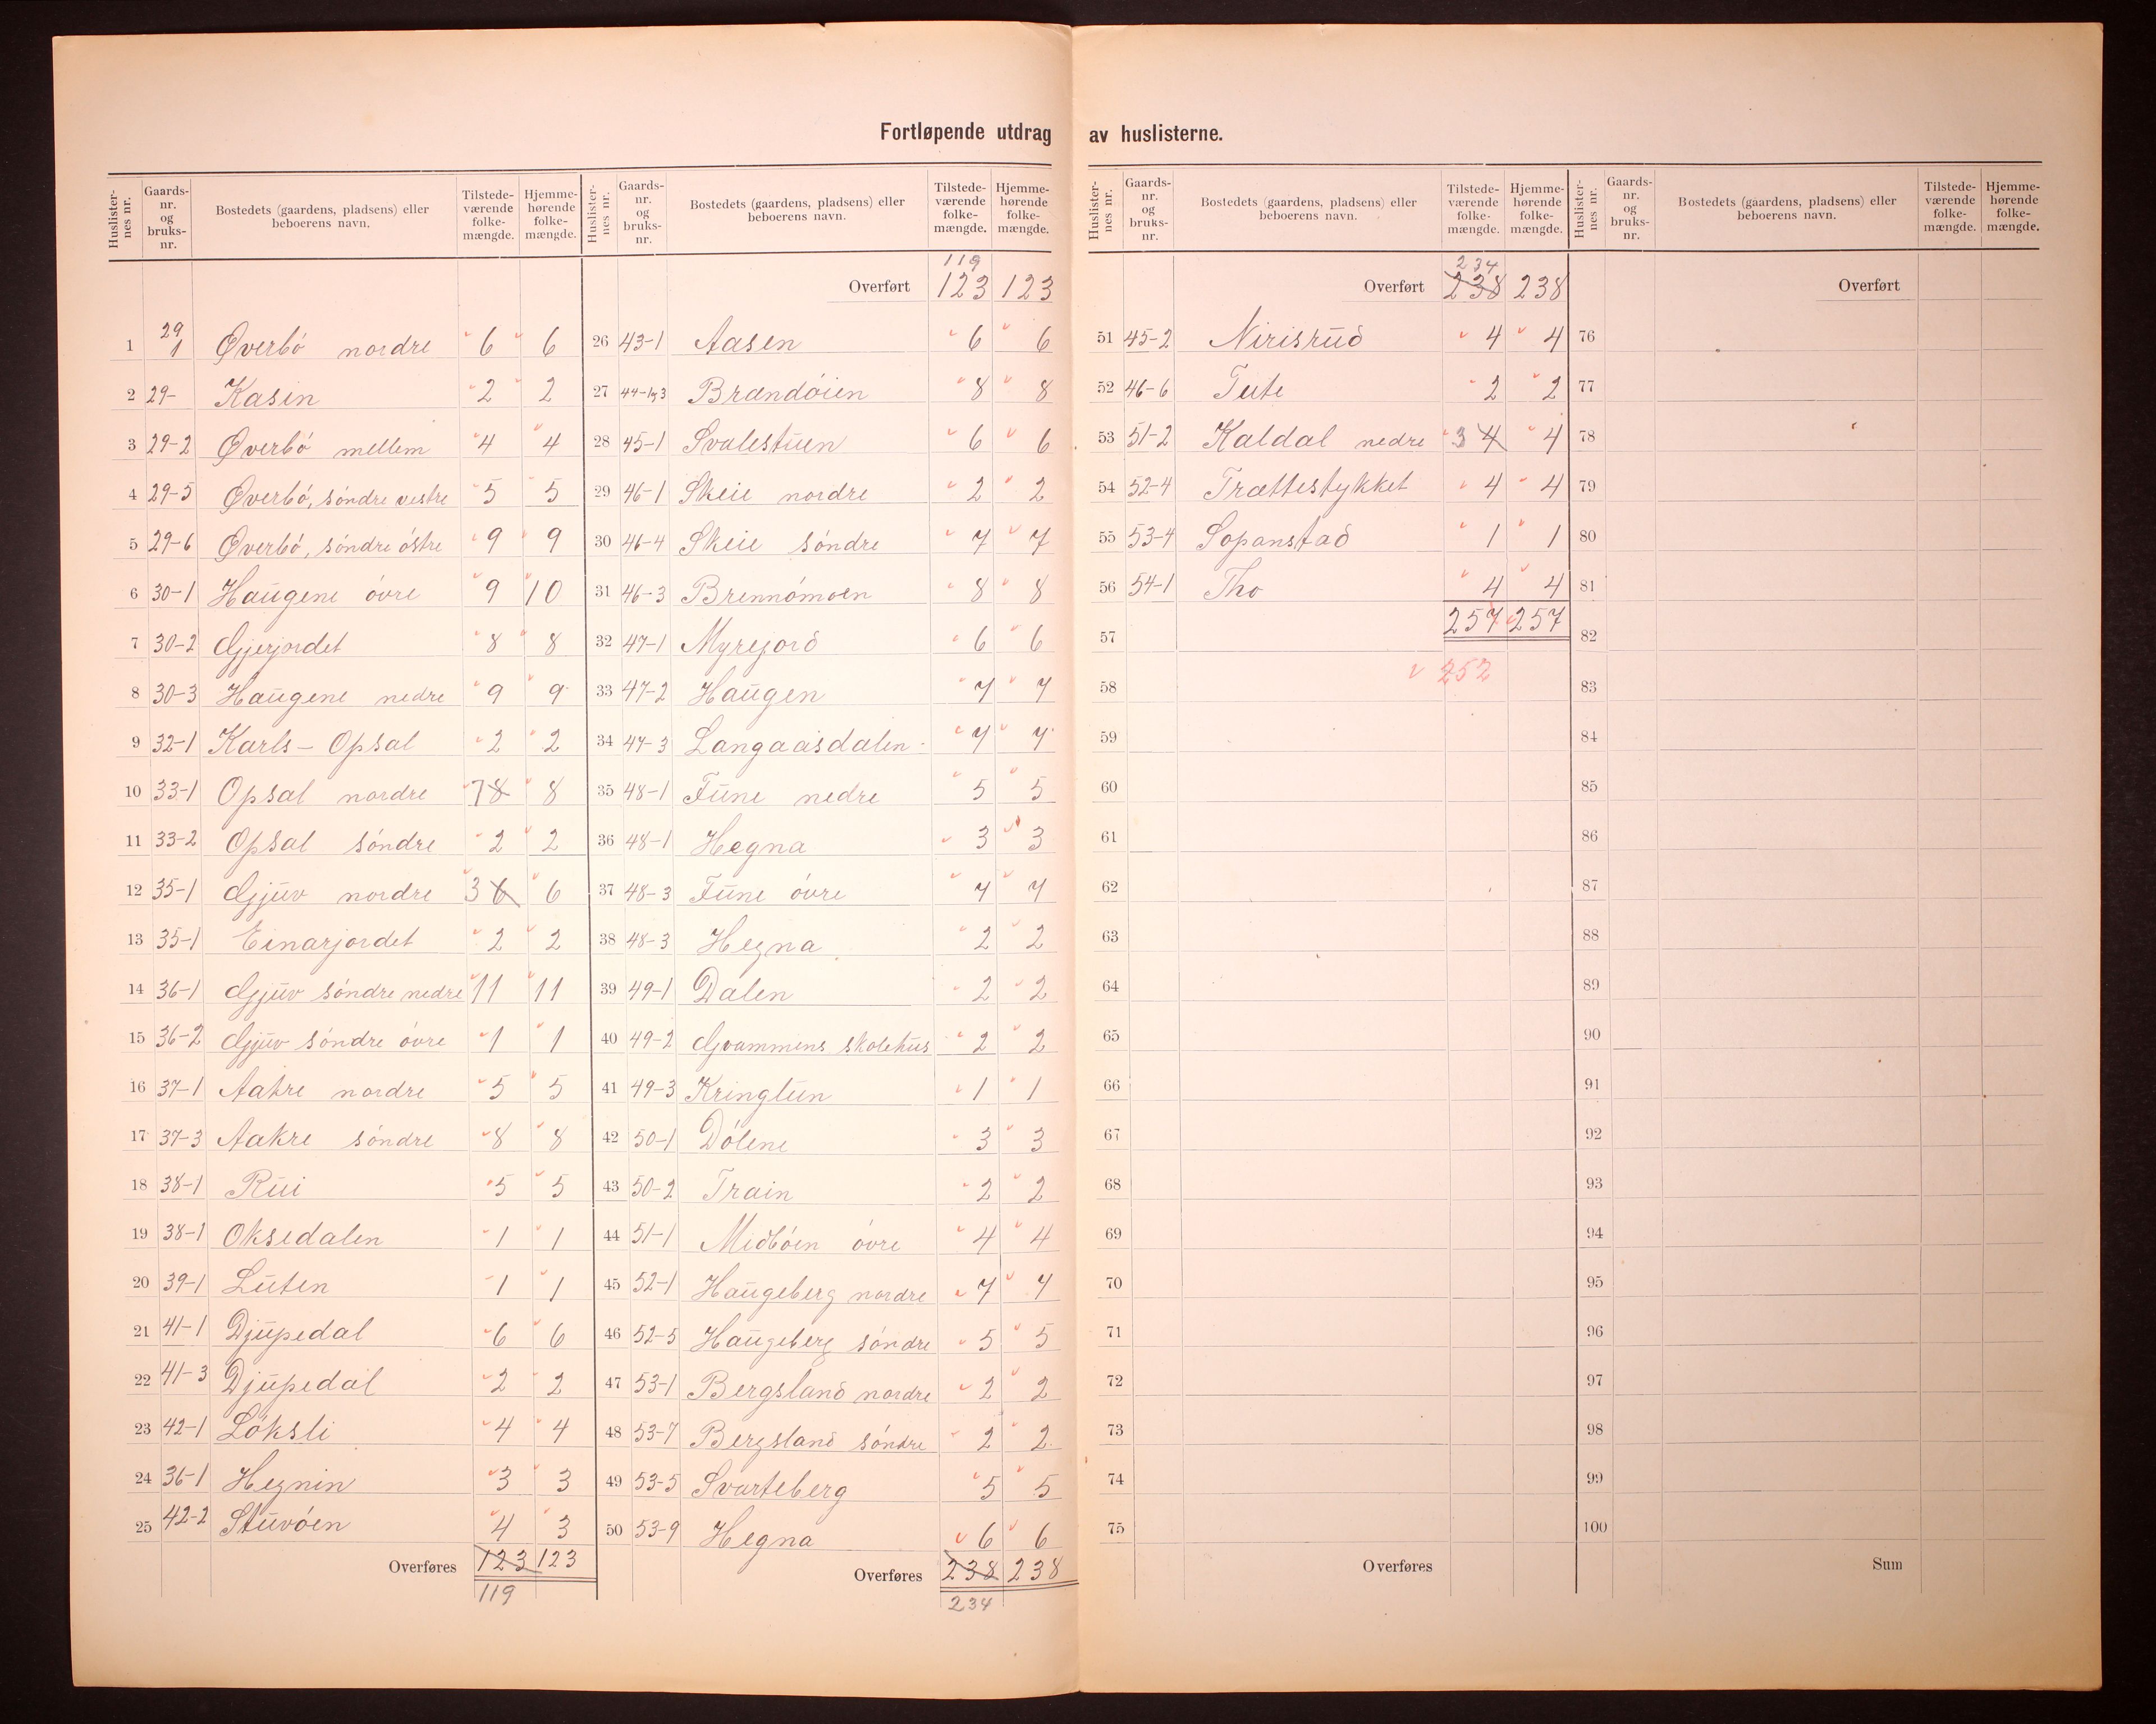 Fortløpende utdrag av huslisterne.
Huslisternes nr. Gaards-nr. og bruks-nr. Bostedets (gaardens, pladsens) eller beboerens navn. Tilstede-værende folke-mængde. Hjemme-hørende folke-mængde.
1 29 1 Øverbö nordre 6 6
2 29- Kasin 2 2
3 29-2 Øverbö mellem 4 4
4 29-5 Øverbö, söndre vestre 5 5
5 29-6 Øverbö, söndre östre 9 9
6 30-1 Haugene övre 9 10
7 30-2 Gjerjordet 8 8
8 30-3 Haugene nedre 9 9
9 32-1 Karls-Opsal 2 2
10 33-1 Opsal nordre 7 8 8
11 33-2 Opsal söndre 2 2
12 35-1 Gjuv nordre 3 6 6
13 35-1 Einarjordet 2 2
14 36-1 Gjuv söndre nedre 11 11
15 36-2 Gjuv söndre övre 1 1
16 37-1 Aakre nordre 5 5
17 37-3 Aakre söndre 8 8
18 38-1 Rui 5 5
19 38-1 Oksedalen 1 1
20 39-1 Luten 1 1
21 41-1 Djupedal 6 6
22 41-3 Djupedal 2 2
23 42-1 Löksli 4 4
24 36-1 Hegnin 3 3
25 42-2 Stuvöen 4 3
Overføres 123 123
119
Huslisternes nr. Gaards-nr. og bruks-nr. Bostedets (gaardens, pladsens) eller beboerens navn. Tilstede-værende folke-mængde. Hjemme-hørende folke-mængde.
119
Overført 123 123
26 43-1 Aasen 6 6
27 44-1g3 Brændöien 8 8
28 45-1 Svalestuen 6 6
29 46-1 Skeie nordre 2 2
30 46-4 Skeie söndre 7 7
31 46-3 Brennömoen 8 8
32 47-1 Myrejord 6 6
33 47-2 Haugen 7 7
34 47-3 Langaasdalen 7 7
35 48-1 Fune nedre 5 5
36 48-1 Hegna 3 3
37 48-3 Fune övre 7 7
38 48-3 Hegna 2 2
39 49-1 Dalen 2 2
40 49-2 Gvammens skolehus 2 2
41 49-3 Kringlun 1 1
42 50-1 Dölene 3 3
43 50-2 Train 2 2
44 51-1 Midböen övre 4 4
45 52-1 Haugeberg nordre 7 7
46 52-5 Haugeberg söndre 5 5
47 53-1 Bergsland nordre 2 2
48 53-7 Bergsland söndre 2 2
49 53-5 Svarteberg 5 5
50 53-9 Hegna 6 6
Overføres 238 238
234
Huslisternes nr. Gaards-nr. og bruks-nr. Bostedets (gaardens, pladsens) eller beboerens navn. Tilstede-værende folke-mængde. Hjemme-hørende folke-mængde.
234
Overført 238 238
51 45-2 Nirisrud 4 4
52 46-6 Tute 2 2
53 51-2 Kaldal nedre 3 4 4
54 52-4 Trættestykket 4 4
55 53-4 Sopanstad 1 1
56 54-1 Tho 4 4
57 257 257
58 252
59
60
61
62
63
64
65
66
67
68
69
70
71
72
73
74
75
Overføres
Huslisternes nr. Gaards-nr. og bruks-nr. Bostedets (gaardens, pladsens) eller beboerens navn. Tilstede-værende folke-mængde. Hjemme-hørende folke-mængde.
Overført
76
77
78
79
80
81
82
83
84
85
86
87
88
89
90
91
92
93
94
95
96
97
98
99
100
Sum